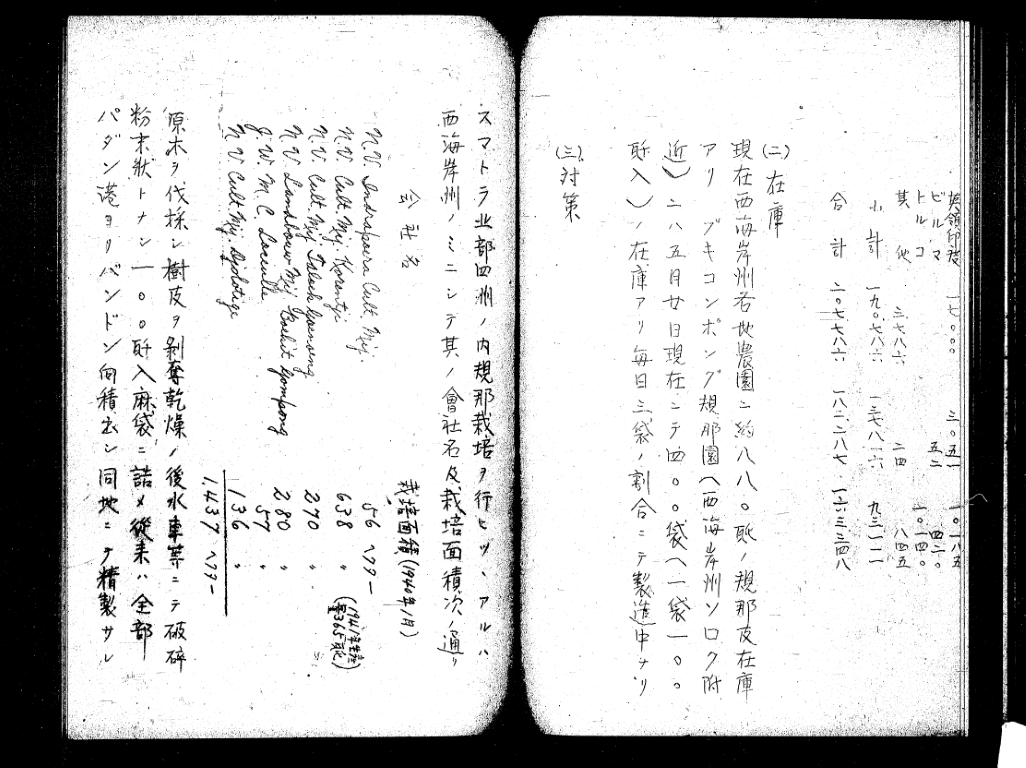 英領印度 一七〇〇〇 三〇五一 一〇一八五
ビルマ 五二 四二〇
トルコ 一〇一四〇
其他 三七八六 二四 八四五
小計 一九〇七八六 一三七八一六 九三一一
合計 二〇七七八六 一八二二八七 一六三三四八
(二) 在庫
現在西海岸州各地農園ニ約八八〇瓩ノ規那皮在庫
アリ ブキコンポング規那園(西海岸州ソロク附
近)ニハ五月廿日現在ニテ四〇〇袋(一袋一〇〇
瓩入)ノ在庫アリ毎日三袋ノ割合ニテ製造中ナリ
(三) 対策
スマトラ北部四洲ノ内規那栽培ヲ行ヒツヽアルハ
西海岸州ノミニシテ其ノ會社名及栽培面積次ノ通リ
会社名 栽培面積(1940年1月)
N.V. Indrapoera Cult. Mij. 56 ヘクター
N.V. Cult. Mij. Korentji 638 〃 (1941年生産量365瓲)
N.V. Cult. Mij. Taloek Goenoeng 270 〃
N.V. Landbouw Mij. Boekit Gompong 280 〃
J.W. M.C. Lucielle 57 〃
N.V. Cult. Mij. 136 〃
1,437 ヘクター
原木ヲ伐採シ樹皮ヲ剥奪乾燥ノ後水車等ニテ破碎
粉末狀トナシ一〇〇瓩入麻袋ニ詰メ從来ハ全部
パダン港ヨリバンドン向積出シ同地ニテ精製サレ